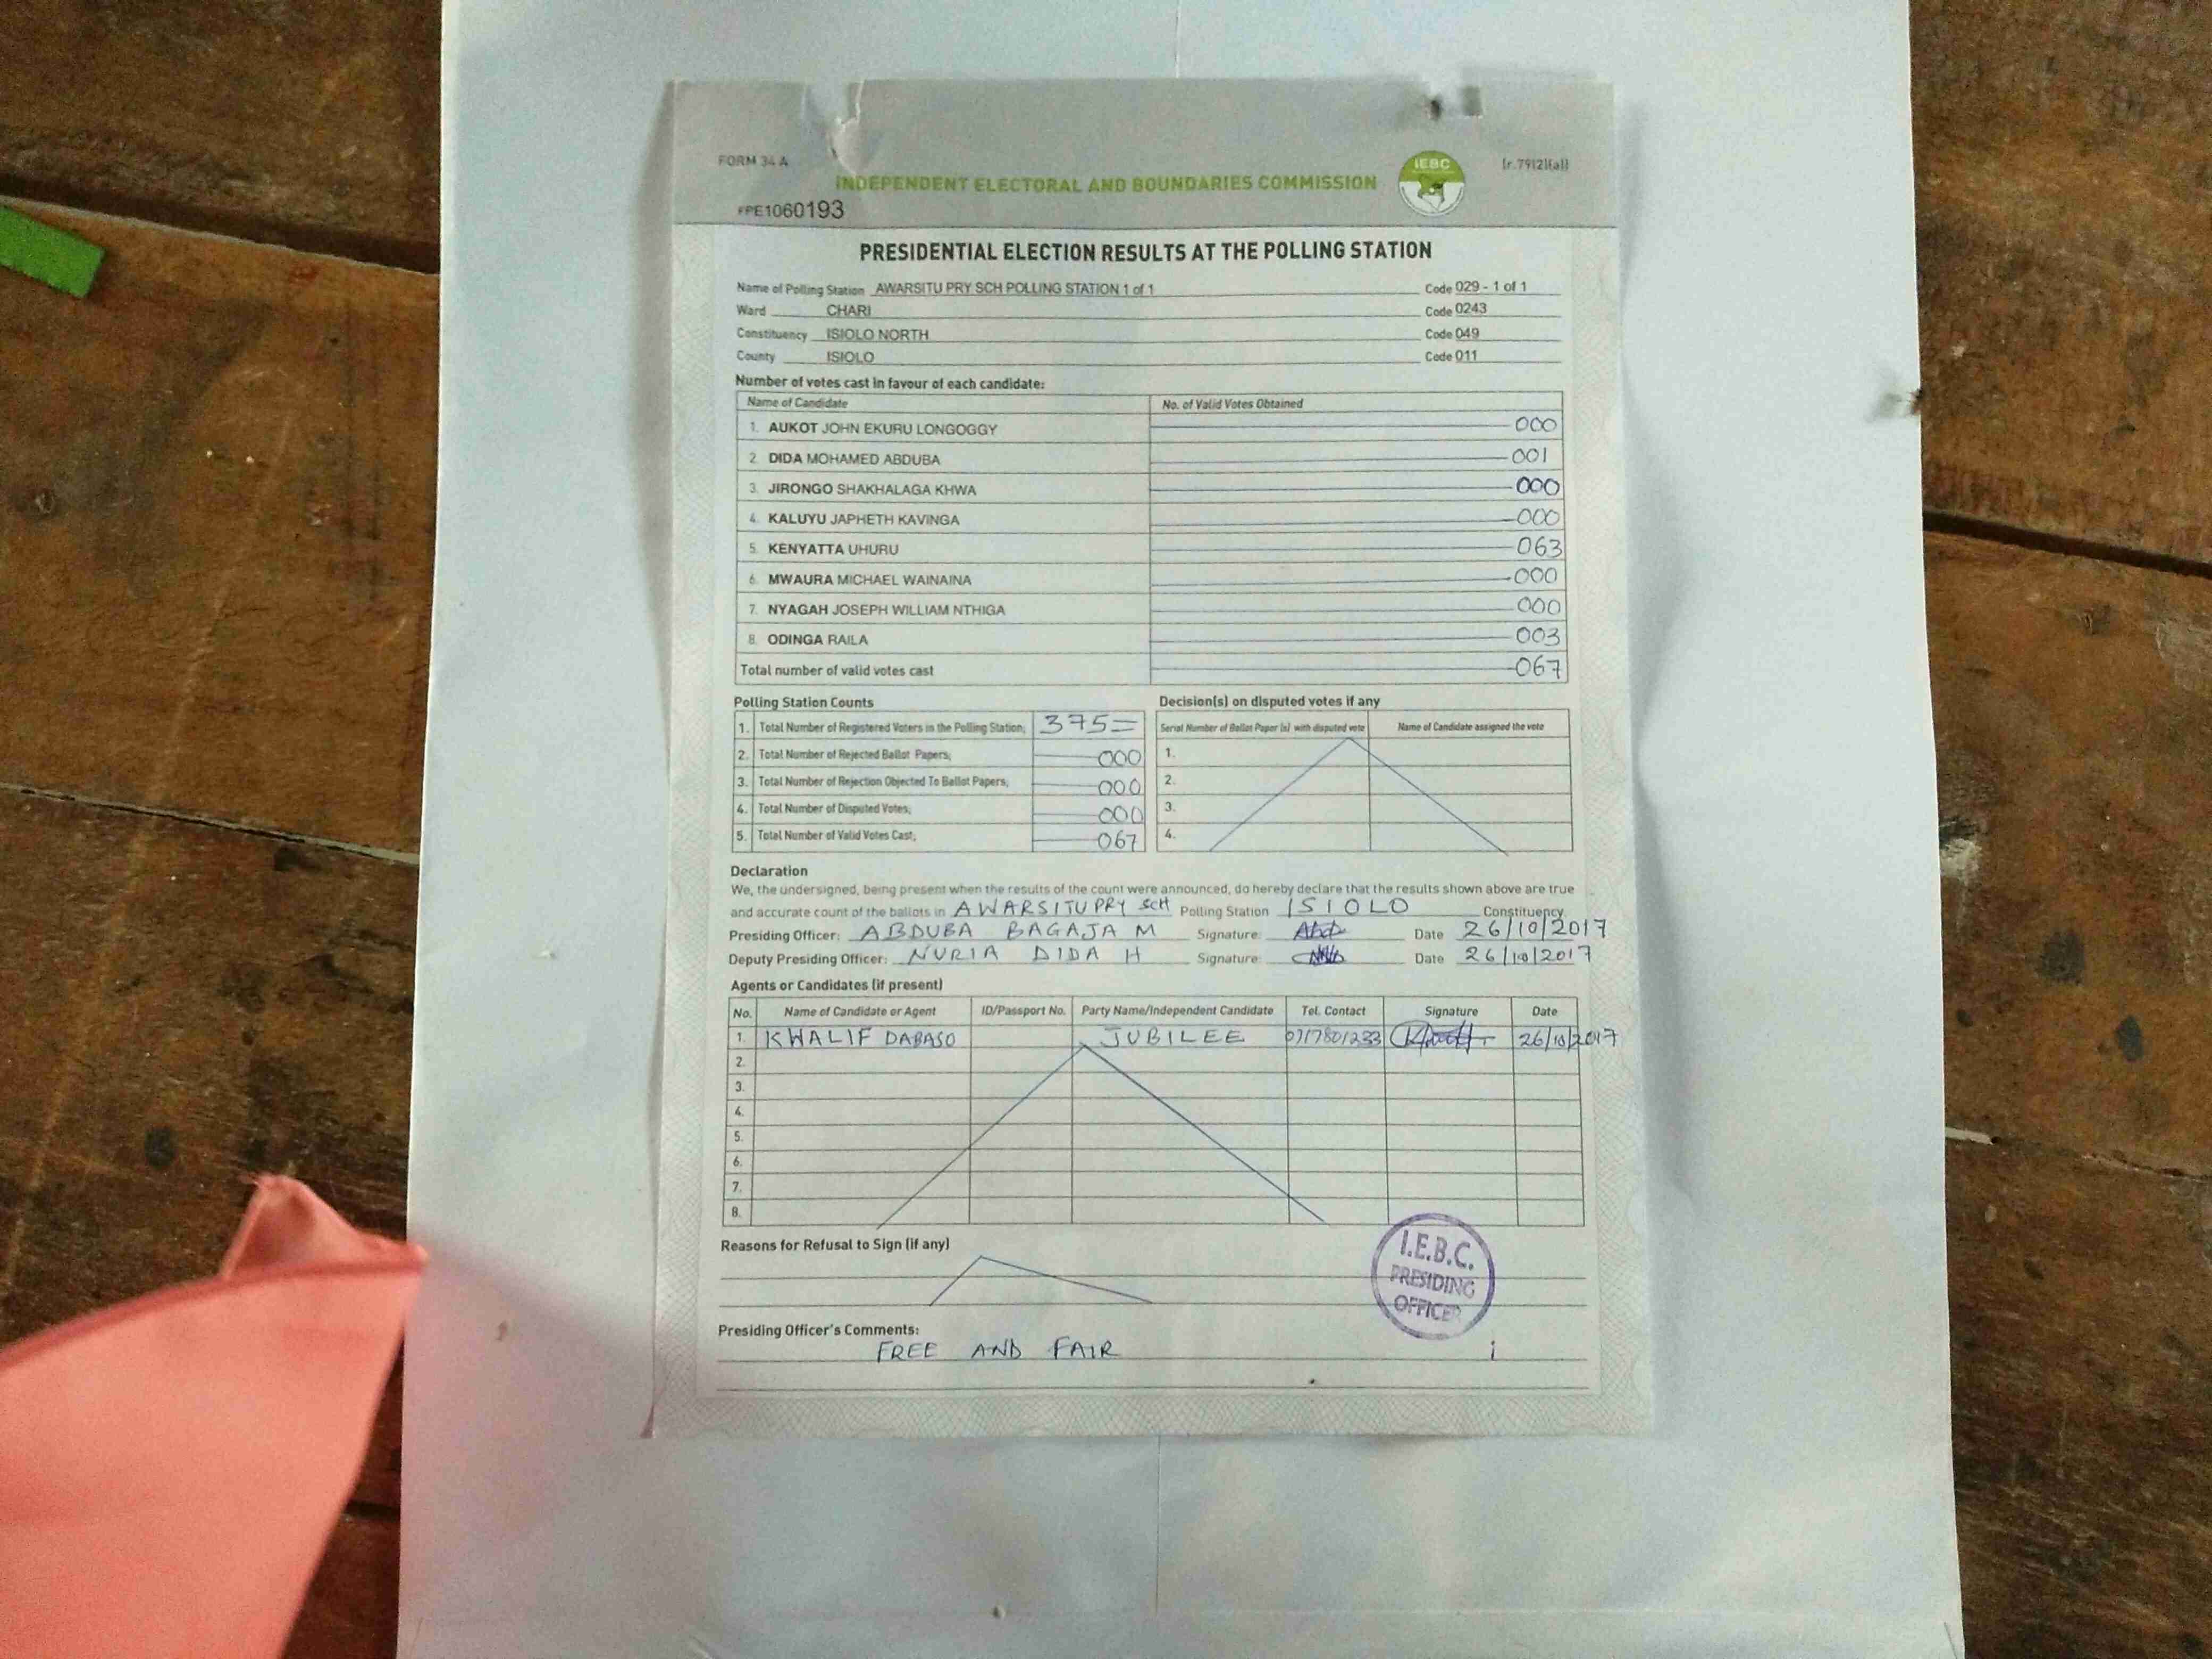 FORM 34 A
IEBC
[r.79(2)(a)]
INDEPENDENT ELECTORAL AND BOUNDARIES COMMISSION
PE1060193
PRESIDENTIAL ELECTION RESULTS AT THE POLLING STATION
Name of Polling Station AWARSITU PRY SCH POLLING STATION 1 of 1 Code 029 - 1 of 1
Ward CHARI Code 0243
Constituency ISIOLO NORTH Code 049
County ISIOLO Code 011
Number of votes cast in favour of each candidate:
Name of Candidate No. of Valid Votes Obtained
1. AUKOT JOHN EKURU LONGOGGY 000
2. DIDA MOHAMED ABDUBA 001
3. JIRONGO SHAKHALAGA KHWA 000
4. KALUYU JAPHETH KAVINGA 000
5. KENYATTA UHURU 063
6. MWAURA MICHAEL WAINAINA 000
7. NYAGAH JOSEPH WILLIAM NTHIGA 000
8. ODINGA RAILA 003
Total number of valid votes cast 067
Polling Station Counts
1. Total Number of Registered Voters in the Polling Station; 375=
2. Total Number of Rejected Ballot Papers; 000
3. Total Number of Rejection Objected To Ballot Papers; 000
4. Total Number of Disputed Votes; 000
5. Total Number of Valid Votes Cast; 067
Decision(s) on disputed votes if any
Serial Number of Ballot Paper (s) with disputed vote Name of Candidate assigned the vote
1.
2.
3.
4.
Declaration
We, the undersigned, being present when the results of the count were announced, do hereby declare that the results shown above are true
and accurate count of the ballots in AWARSITU PRY SCH Polling Station ISIOLO Constituency
Presiding Officer: ABDUBA BAGAJA M Signature: Date 26/10/2017
Deputy Presiding Officer: NURIA DIDA H Signature: Date 26/10/2017
Agents or Candidates (if present)
No. Name of Candidate or Agent ID/Passport No. Party Name/Independent Candidate Tel. Contact Signature Date
1. KWALIF DABASO JUBILEE 0717801233 26/10/2017
2.
3.
4.
5.
6.
7.
8.
Reasons for Refusal to Sign (if any)
I.E.B.C.
PRESIDING
OFFICER
Presiding Officer's Comments:
FREE AND FAIR